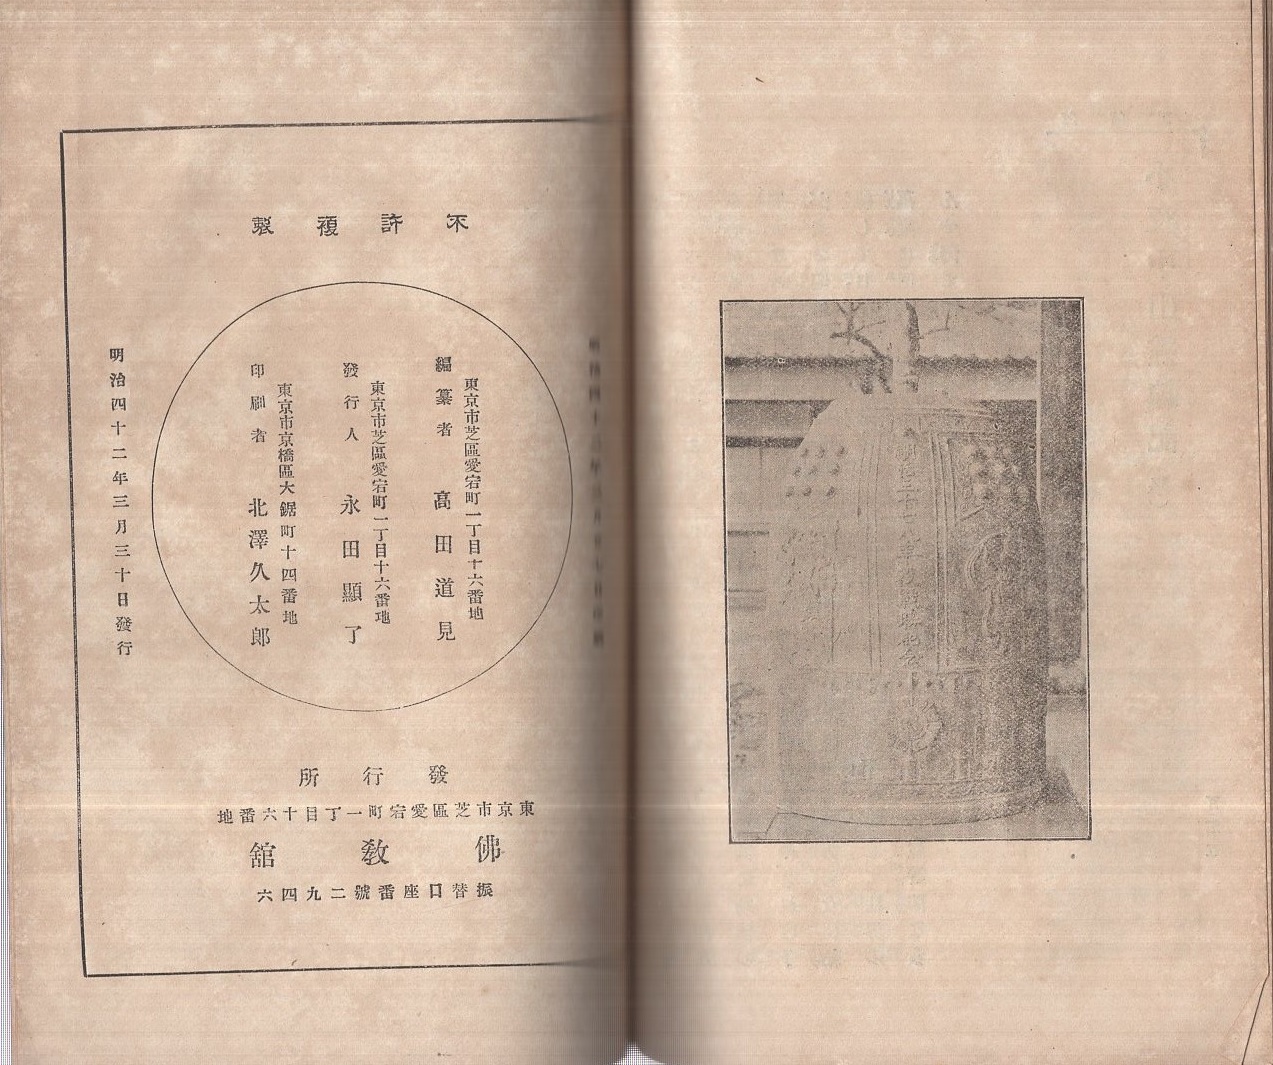 不許複製
東京市芝區愛宕町一丁目十六番地
編纂者 高田道見
東京市芝區愛宕町一丁目十六番地
發行人 永田顯了
東京市京橋區大鋸町十四番地
印刷者 北澤久太郎
明治四十二年三月三十日發行
發行所
東京市芝區愛宕町一丁目十六番地
佛教舘
振替口座番號二九四六